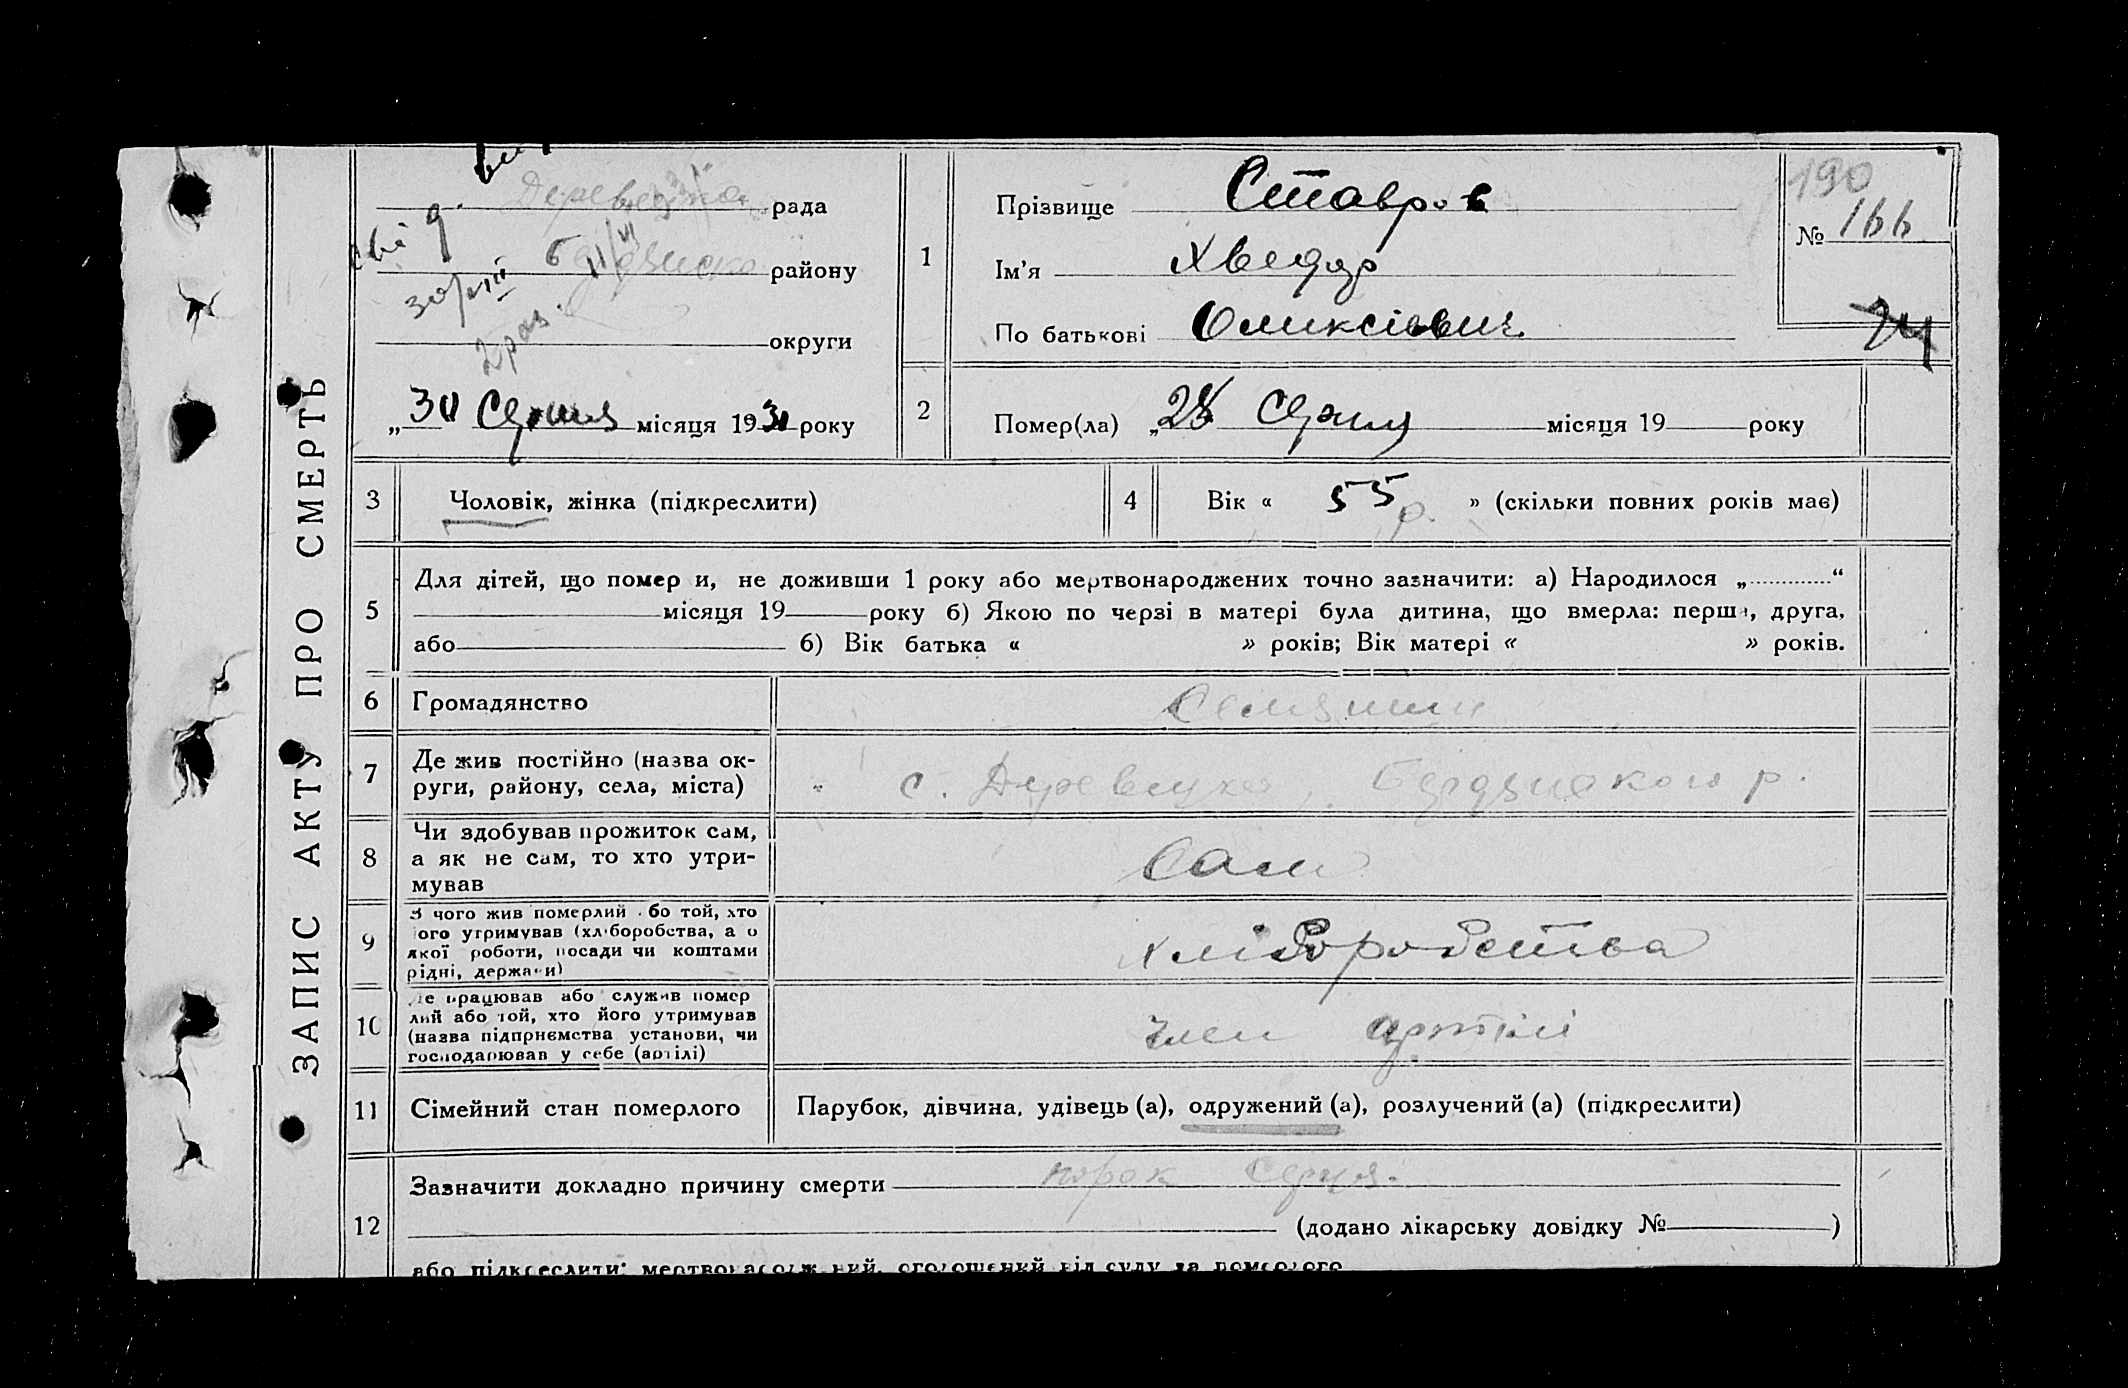 ЗАПИС АКТУ ПРО СМЕРТЬ
рада
району
округи
„30 Серпня місяця 1930 року
1
Прізвище Ставров
Ім'я Хведор
По батькові Олексієвич
190
№ 166
2
Помер(ла) „28 Серпня місяця 19 року
3
Чоловік, жінка (підкреслити)
4
Вік « 55 р. » (скільки повних років має)
5
Для дітей, що помер и, не доживши 1 року або мертвонароджених точно зазначити: а) Народилося „ “
місяця 19 року б) Якою по черзі в матері була дитина, що вмерла: перша, друга,
або б) Вік батька « » років; Вік матері « » років.
6
Громадянство
Селянин
7
Де жив постійно (назва ок-
руги, району, села, міста)
с. р.
8
Чи здобував прожиток сам,
а як не сам, то хто утри-
мував
Сам
9
З чого жив померлий або той, хто
його утримував (хліборобства, а о
якої роботи, посади чи коштами
рідні, держави)
хліборобства
10
Де працював або служив помер
лий або той, хто його утримував
(назва підпрнємства установи, чи
господарював у себе (артілі)
член артілі
11
Сімейний стан померлого
Парубок, дівчина, удівець (а), одружений (а), розлучений (а) (підкреслити)
12
Зазначити докладно причину смерти порок серця.
(додано лікарську довідку № )
або підкреслити: